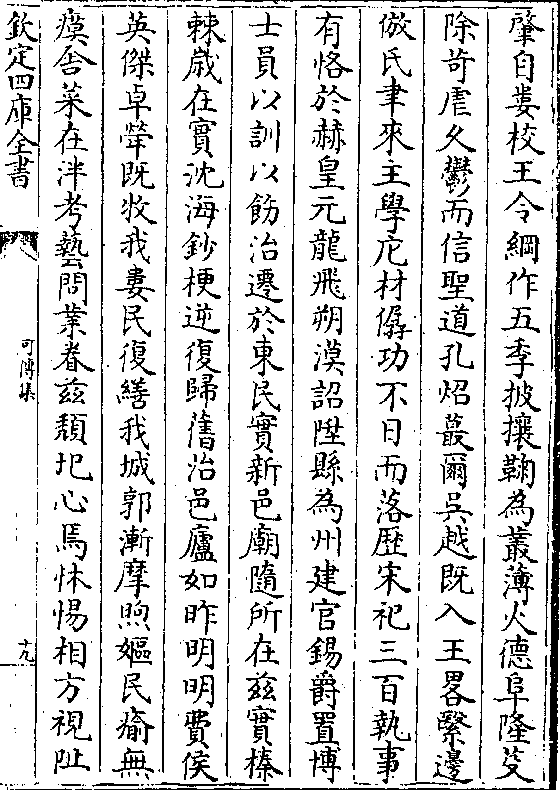 肇自婁校王令綱作五季披攘鞠為叢薄火德阜隆芟
除苛虐久鬱而信聖道孔炤蕞爾吳越既入王畧繄邊
倣氏聿來主學庀材僝功不日而落歴宋祀三百執事
有恪於赫皇元龍飛朔漠詔陞縣為州建官錫爵置博
士員以訓以飭治遷於東民實新邑廟隨所在兹實榛
棘歲在實沈海鈔梗逆復歸舊治邑廬如昨明明費侯
英傑卓犖既牧我婁民復繕我城郭漸摩煦嫗民瘉無
瘼舍菜在泮考藝問業眷兹頽圮心焉怵惕相方視址
欽定四庫全書
可傳集
十九